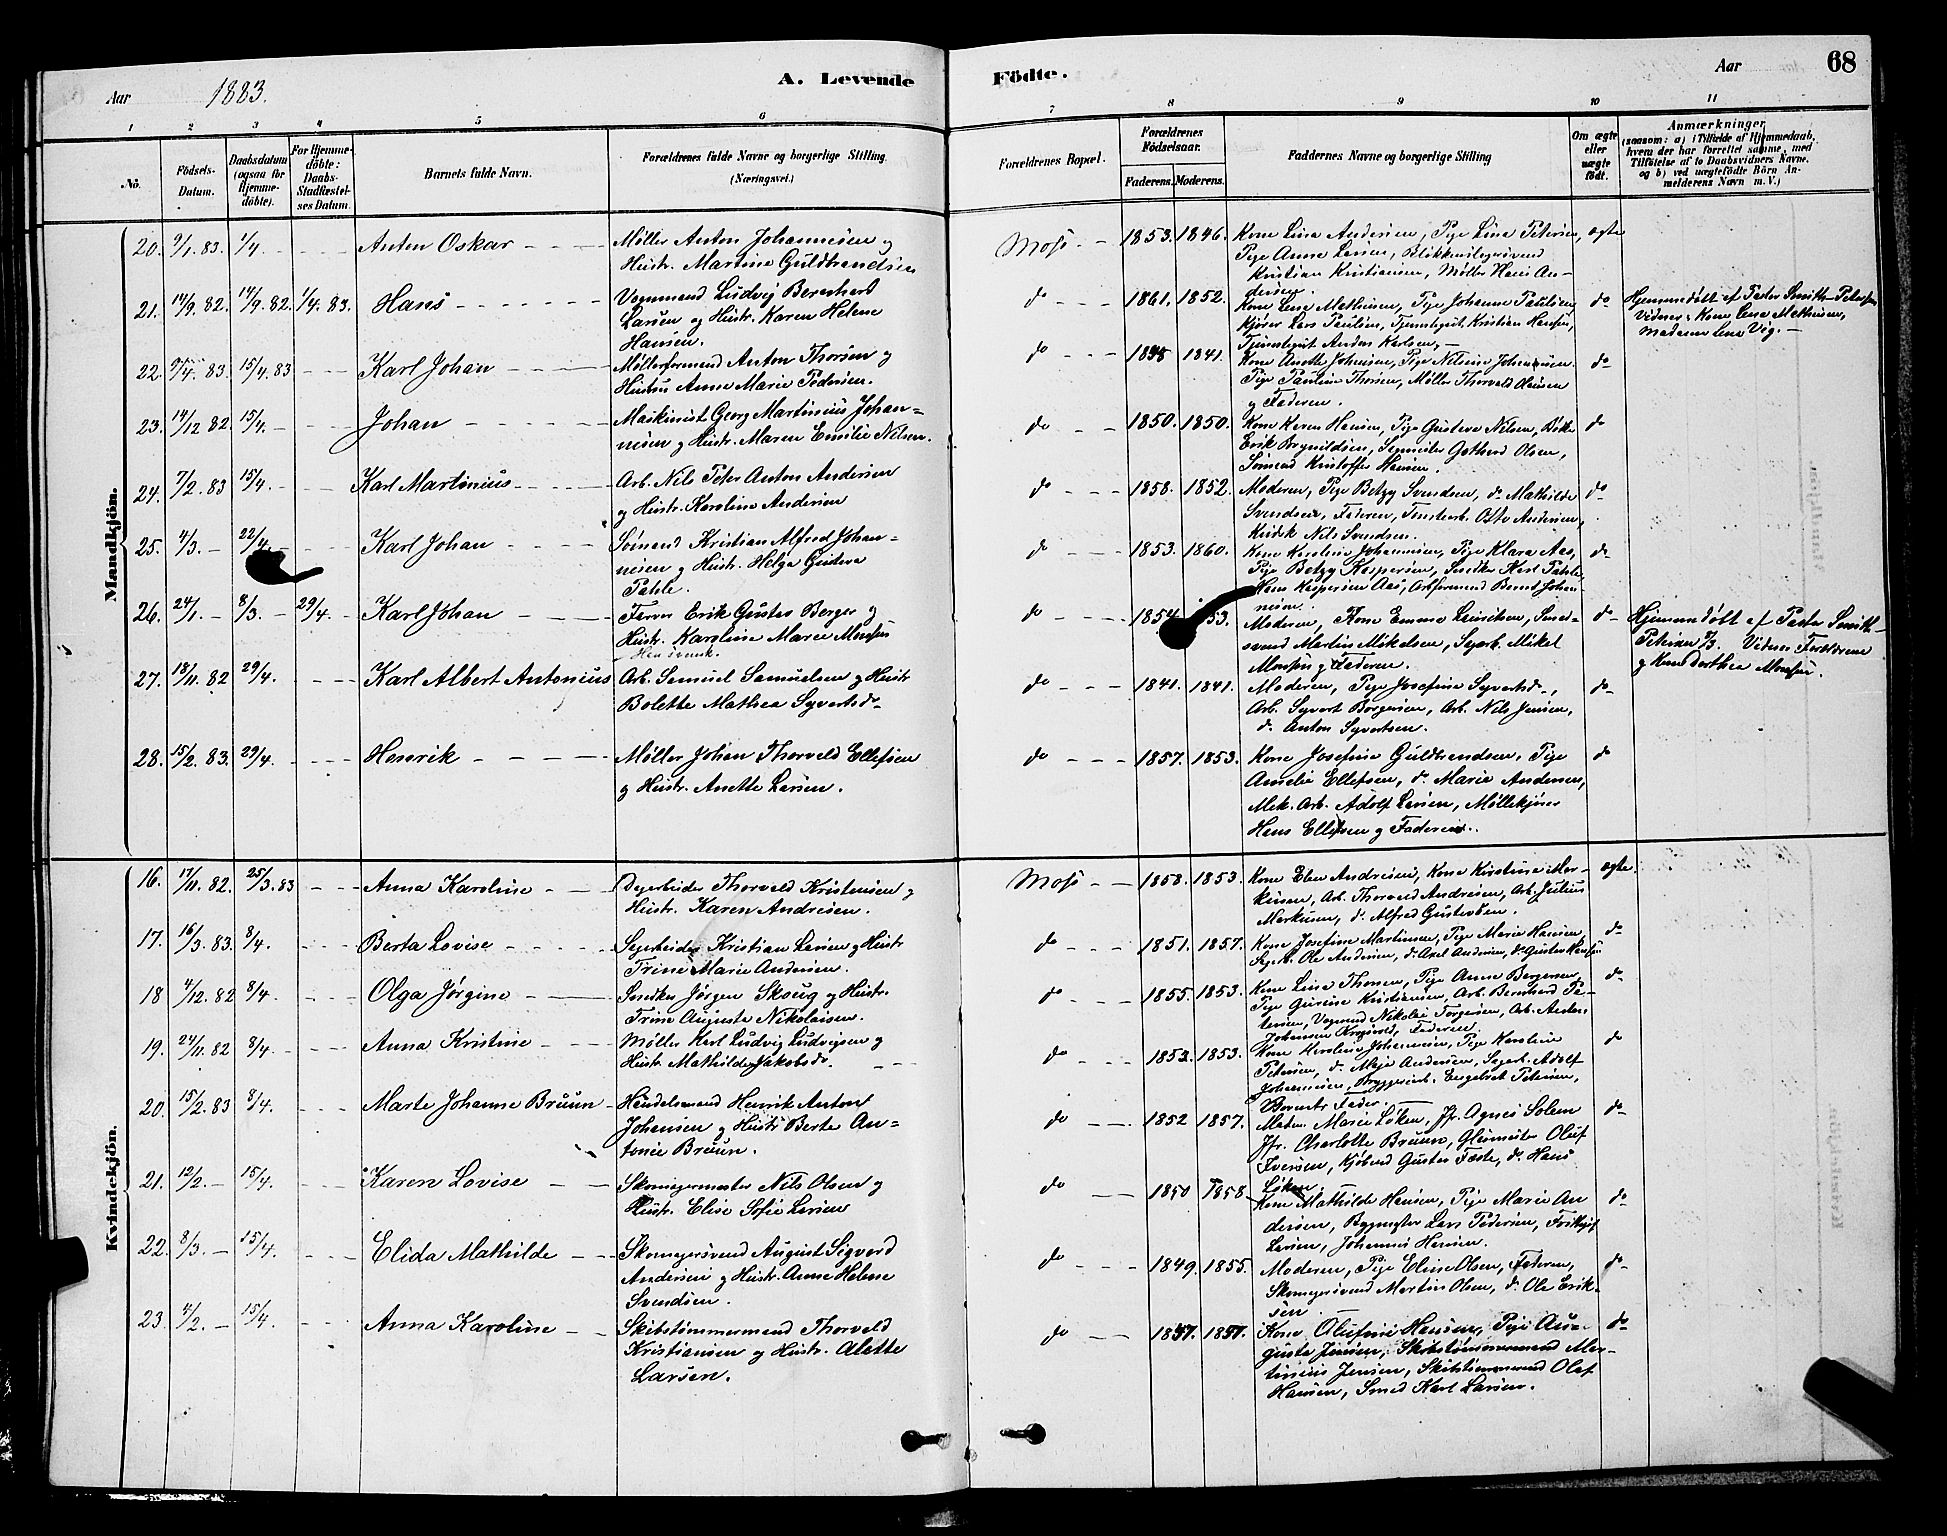 Aar 1883. A. Levende
Födte. Aar 68
1 2 3 4 5 6
7 8 9 10 11
No. Födsels-Datum. Daabsdatum (ogsaa for Hjemmedöbte). For Hjemmedöbte: Daabs-Stadfæstelses Datum. Barnets fulde Navn. Forældrenes fulde Navne og borgerlige Stilling. (Næringsvei.)
Forældrenes Bopæl. Forældrenes Födselsaar. Faderens. Moderens. Faddernes Navne og borgerlige Stilling Om ægte eller uægte födt. Anmærkninger (saasom: a) i Tilfælde af Hjemmedaab, hvem der har forrettet samme, med Tilföielse af to Daabsvidners Navne. og b) ved uægtefödte Börn Anmelderens Navn m. V.)
Mandkjön.
20. 9/1. 83. 1/4. Anton Oskar Møller Anton Johannesen og
Hustr. Martine Guldbrandsen
Moss 1853. 1846. Kone Lina Andersen, Pige Lina Petersen, ægte
Pige Anna Larsen,
Kristian Kristiansen, Møller Hans An-
dersen.
21. 14/9. 82. 14/9. 82. 1/4. 83. Hans Vognmand Ludvig Bernhart
Larsen og Hustr. Karen Helene
Hansen.
do 1861. 1852. Kone Lene Mathisen, Pige Johanne Paulsen, do
Kjører Lars Paulsen, Kristian Hansen,
Anders Karlsen,
Hjemmedøbt af Pastor Smith-Petersen
Vidner: Kone Lene Mathisen,
Madame Lena Vig.
22. 9/4. 83. 15/4. 83 Karl Johan Møllerformand Anton Thorsen og
Hustru Anna Marie Pedersen.
do 1841. Kone Anette Johnsen, Pige Nilsine Johannesen do
Pige Pauline Thorsen, Møller Thorvald Olausen
og Faderen.
23. 14/12 82. 15/4. Johan Maskinist Georg Martinius Johan-
nesen og Hustr. Maren Emilie Nilsen.
do 1850. 1850. Kone Karen Hansen, Pige Gustava Nilsen, do
Erik Brynildsen, Gothard Olsen,
Sømand Kristoffer Hansen.
24. 7/2. 83 15/4. Karl Martinius Arb. Nils Peter Anton Andersen
og Hustr. Karoline Andersen
do 1858. 1852. Moderen, Pige Betzy Svendsen, do Mathilde do
Svendsen, Faderen, Otto Andersen,
Nils Svendsen.
25. 4/3. 22/4. Karl Johan Sømand Kristian Alfred Johan-
nesen og Hustr. Helga Gustava
Pahle.
do 1853. 1860. Kone Karoline Johannesen, Pige Klara Aas, do
Pige Betzy Kaspersen, Snedker Karl Pahle,
Hans Kaspersen Aas, Arbformand Bernt Johan-
nesen.
26. 24/1. 8/3. 29/4. Karl Johan Farver Erik Gustav Berger og
Hustr. Karoline Marie Monsen
Han svensk.
do 1854. Moderen, Kone Emma Lauritsen, do
Martin Mikelsen, Sagarb. Mikel
Monsen og Faderen.
Hjemmedøbt af Pastor Smith-
Petersen 8/3. Vidner Forældrene
og Kone Dorthea Monsen.
27. 18/11. 82 29/4. Karl Albert Antonius Arb. Samuel Samuelsen og Hustr.
Bolette Mathea Syvertsd.
do 1841. 1841. Moderen, Pige Josefine Syvertsd., do
Arb. Syvert Borgersen, Arb. Nils Jensen,
do Anton Syvertsen.
28. 15/2. 83. 29/4. Henrik Møller Johan Thorvald Ellefsen
og Hustr. Anette Larsen.
do 1857. 1853. Kone Josefine Guldbrandsen, Pige do
Amelie Ellefsen, do Marie Andersen,
Mek. Arb. Adolf Larsen, Møllekjører
Hans Ellefsen og Faderen.
Kvindekjön.
16. 17/11. 82. 25/3. 83 Anna Karoline Dagarbeider Thorvald Kristensen og
Hustr. Karen Andresen.
Moss 1858. 1853. Kone Elen Andresen, Kone Kirstine Mar- ægte
kusen, Arb. Thorvald Andresen, Arb. Julius
Markusen, do Alfred Gustavsen.
17. 16/3. 83. 8/4. Berta Lovise Sagarbeider Kristian Larsen og Hustr.
Trine Marie Andersen.
do 1851. 1857. Kone Josefine Martinsen, Pige Marie Hansen, do
Sagarb. Ole Andersen, do Axel Andersen, do Gustav Hansen
18 4/12. 82 8/4. Olga Jørgine Snedker Jørgen Skoug og Hustr.
Trine Augusta Nikolaisen.
do 1855. 1853. Kone Lina Thomsen, Pige Anna Bergersen, do
Pige Gurine Kristiansen, Arb. Bernhard Pe-
tersen, Vognmd Nikolai Torgersen, Arb. Anders
Johansen Faderen.
19. 24/11. 82 8/4. Anna Kristine Møller Karl Ludvig Ludvigsen og
Hustr. Mathilde Jakobsd.
do 1853. 1853. Kone Karoline Johannesen, Pige Karoline do
Petersen, do Maja Andersen, Sagarb. Adolf
Johannesen, Bryggeriarb. Engebret Petersen,
Barnets Fader.
20. 15/2. 83 8/4. Marte Johanne Bruun Handelsmand Henrik Anton
Johansen og Hustr. Berte An-
tonie Bruun.
do 1852 1857. Madam Marie Løken, Jfr. Agnes Solem do
Jfr. Charlotte Bruun, Oluf
Iversen, Kjøbmd Gustav Fæste, do Hans
Løken.
21. 12/2. 15/4. Karen Lovise Skomagermester Nils Olsen og
Hustr. Elise Sofie Larsen
do 1850 1858. Kone Mathilde Hansen, Pige Marie An do
dersen, Bygmester Lars Pedersen,
Larsen, Johannes Hansen.
22. 8/3. 15/4. Elida Mathilde Skomagersvend August Sigvard
Andersen og Hustr. Anne Helene
Svendsen.
do 1849. 1855. Moderen, Pige Eline Olsen, Faderen, do
Skomagersvend Martin Olsen, do Ole Erik-
sen.
23. 4/2. 15/4. Anna Karoline Skibstømmermand Thorvald
Kristiansen og Hustr. Alette
Larsen.
do 1857. 1857. Kone Olufine Hansen, Pige Au- do
gusta Jensen, Skibstømmermand Mar-
tinius Jensen, Skibstømmermand Oluf
Hansen, Smed Karl Larsen.